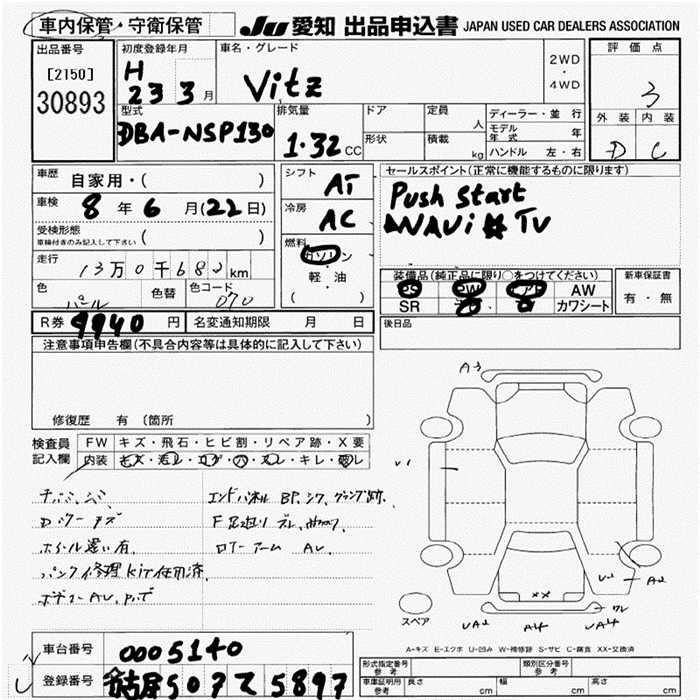 車内保管・守衛保管 JU 愛知 出品申込書 JAPAN USED CAR DEALERS ASSOCIATION
出品番号
[2150]
30893
初度登録年月
H
23 3 月
車名・グレード
Vitz
2WD
・
4WD
評価点
3
外装 内装
D C
型式
DBA-NSP130
排気量
1.32 CC
ドア
形状
定員
人
積載
kg
ディーラー・並行
モデル年式 年
ハンドル 左・右
車歴
自家用・( )
車検
8 年 6 月(22日)
受検形態
車検付きのみ記入して下さい ( )
走行
13万0千682 km
色
パール
色替
色コード
070
シフト
AT
冷房
AC
燃料
ガソリン
・
軽・油
( )
セールスポイント(正常に機能するものに限ります)
Push Start
NAVi TV
装備品(純正品に限り○をつけてください)
PS PW AB AW
SR カワシート
新車保証書
有・無
R券 9940 円 名変通知期限 月 日
後日品
注意事項申告欄(不具合内容等は具体的に記入して下さい)
修復歴 有 (箇所 )
検査員
記入欄
FW キズ・飛石・ヒビ割・リペア跡・X要
内装 キズ・汚レ・コゲ・穴・スレ・キレ・破レ
パンク修理Kit使用済
A3
U1
U2 A2
XX
UA2 A4 UA4
スペア
A-キズ E-エクボ U-凹み W-補修跡 S-サビ C-腐食 XX-交換済
車台番号
0005140
登録番号
名古屋507て5897
形式指定番号
参考
類別区分番号
参考
車庫証明用
参考
長さ cm 幅 cm 高さ cm